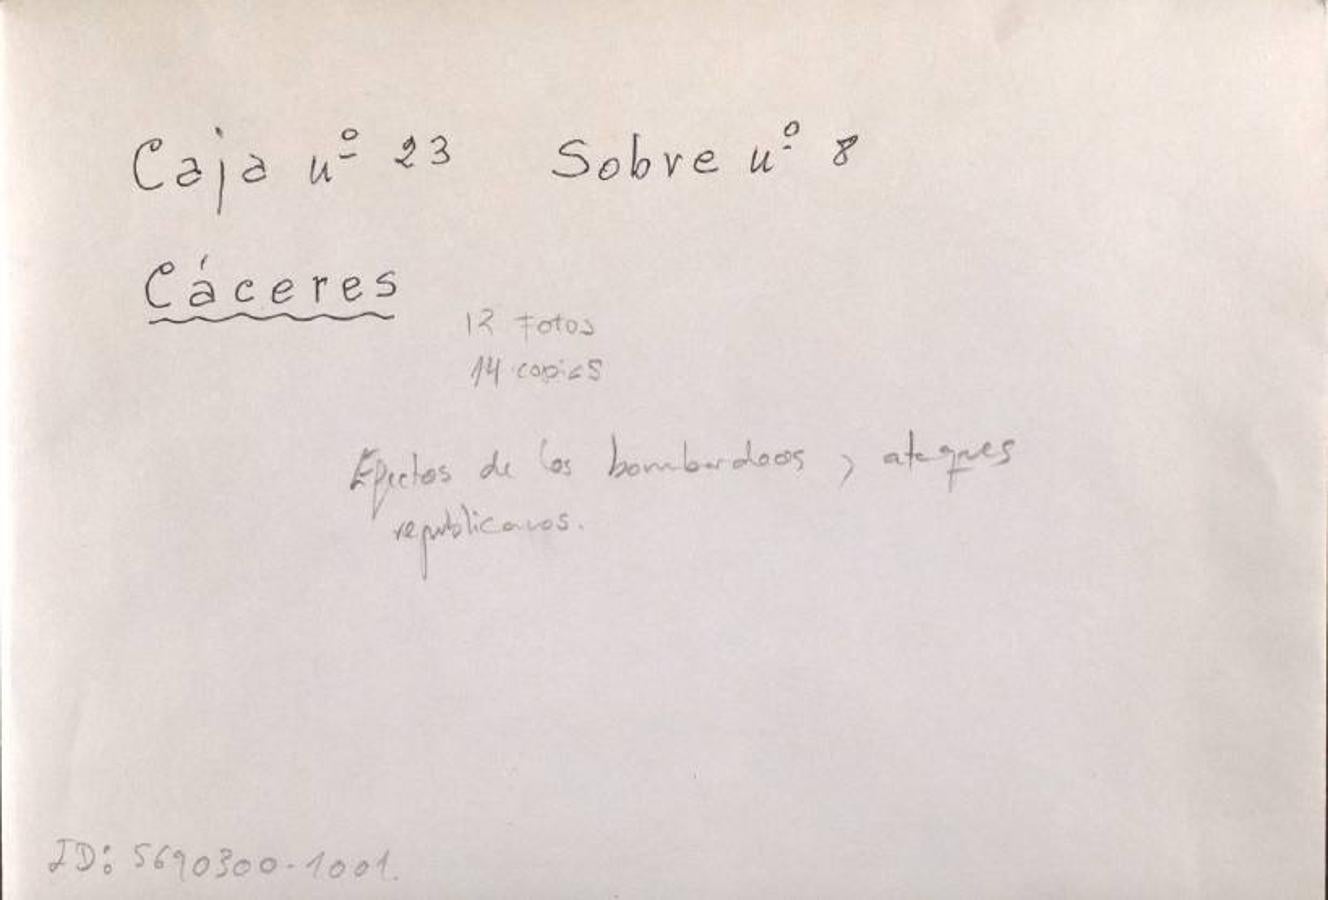 Caja nº 23 Sobre nº 8
Cáceres
12 Fotos
14 copias
Efectos de los bombardeos y ataques
republicanos.
ID: 5690300-1001.